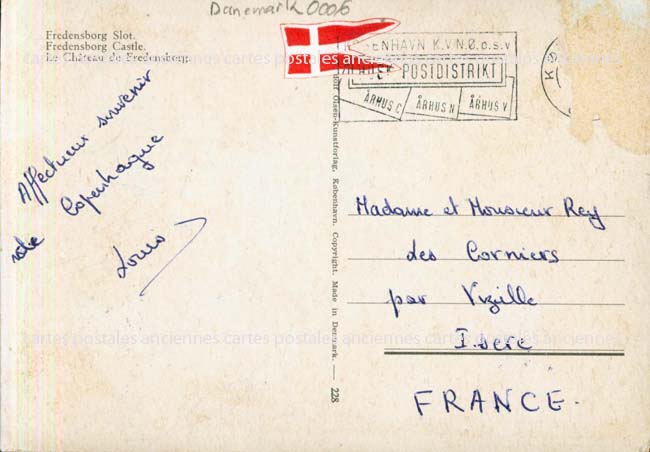 Danemark 0006
Fredensborg Slot.
Fredensborg Castle.
Le Château de Fredensborg.
KØBENHAVN K.V.N.Ø.o.s.v
POSTDISTRIKT
ÅRHUS C ÅRHUS N ÅRHUS V
Affectueux souvenir
Copenhague
Louis
Olsen-Kunstforlag, København. Copyright. Made in Denmark. — 228
Madame et Monsieur Rey
des Corniers
par Vizille
Isère
FRANCE.
cartes postales anciennes cartes postales anciennes cartes postales anciennes
cartes postales anciennes cartes postales anciennes cartes postales anciennes